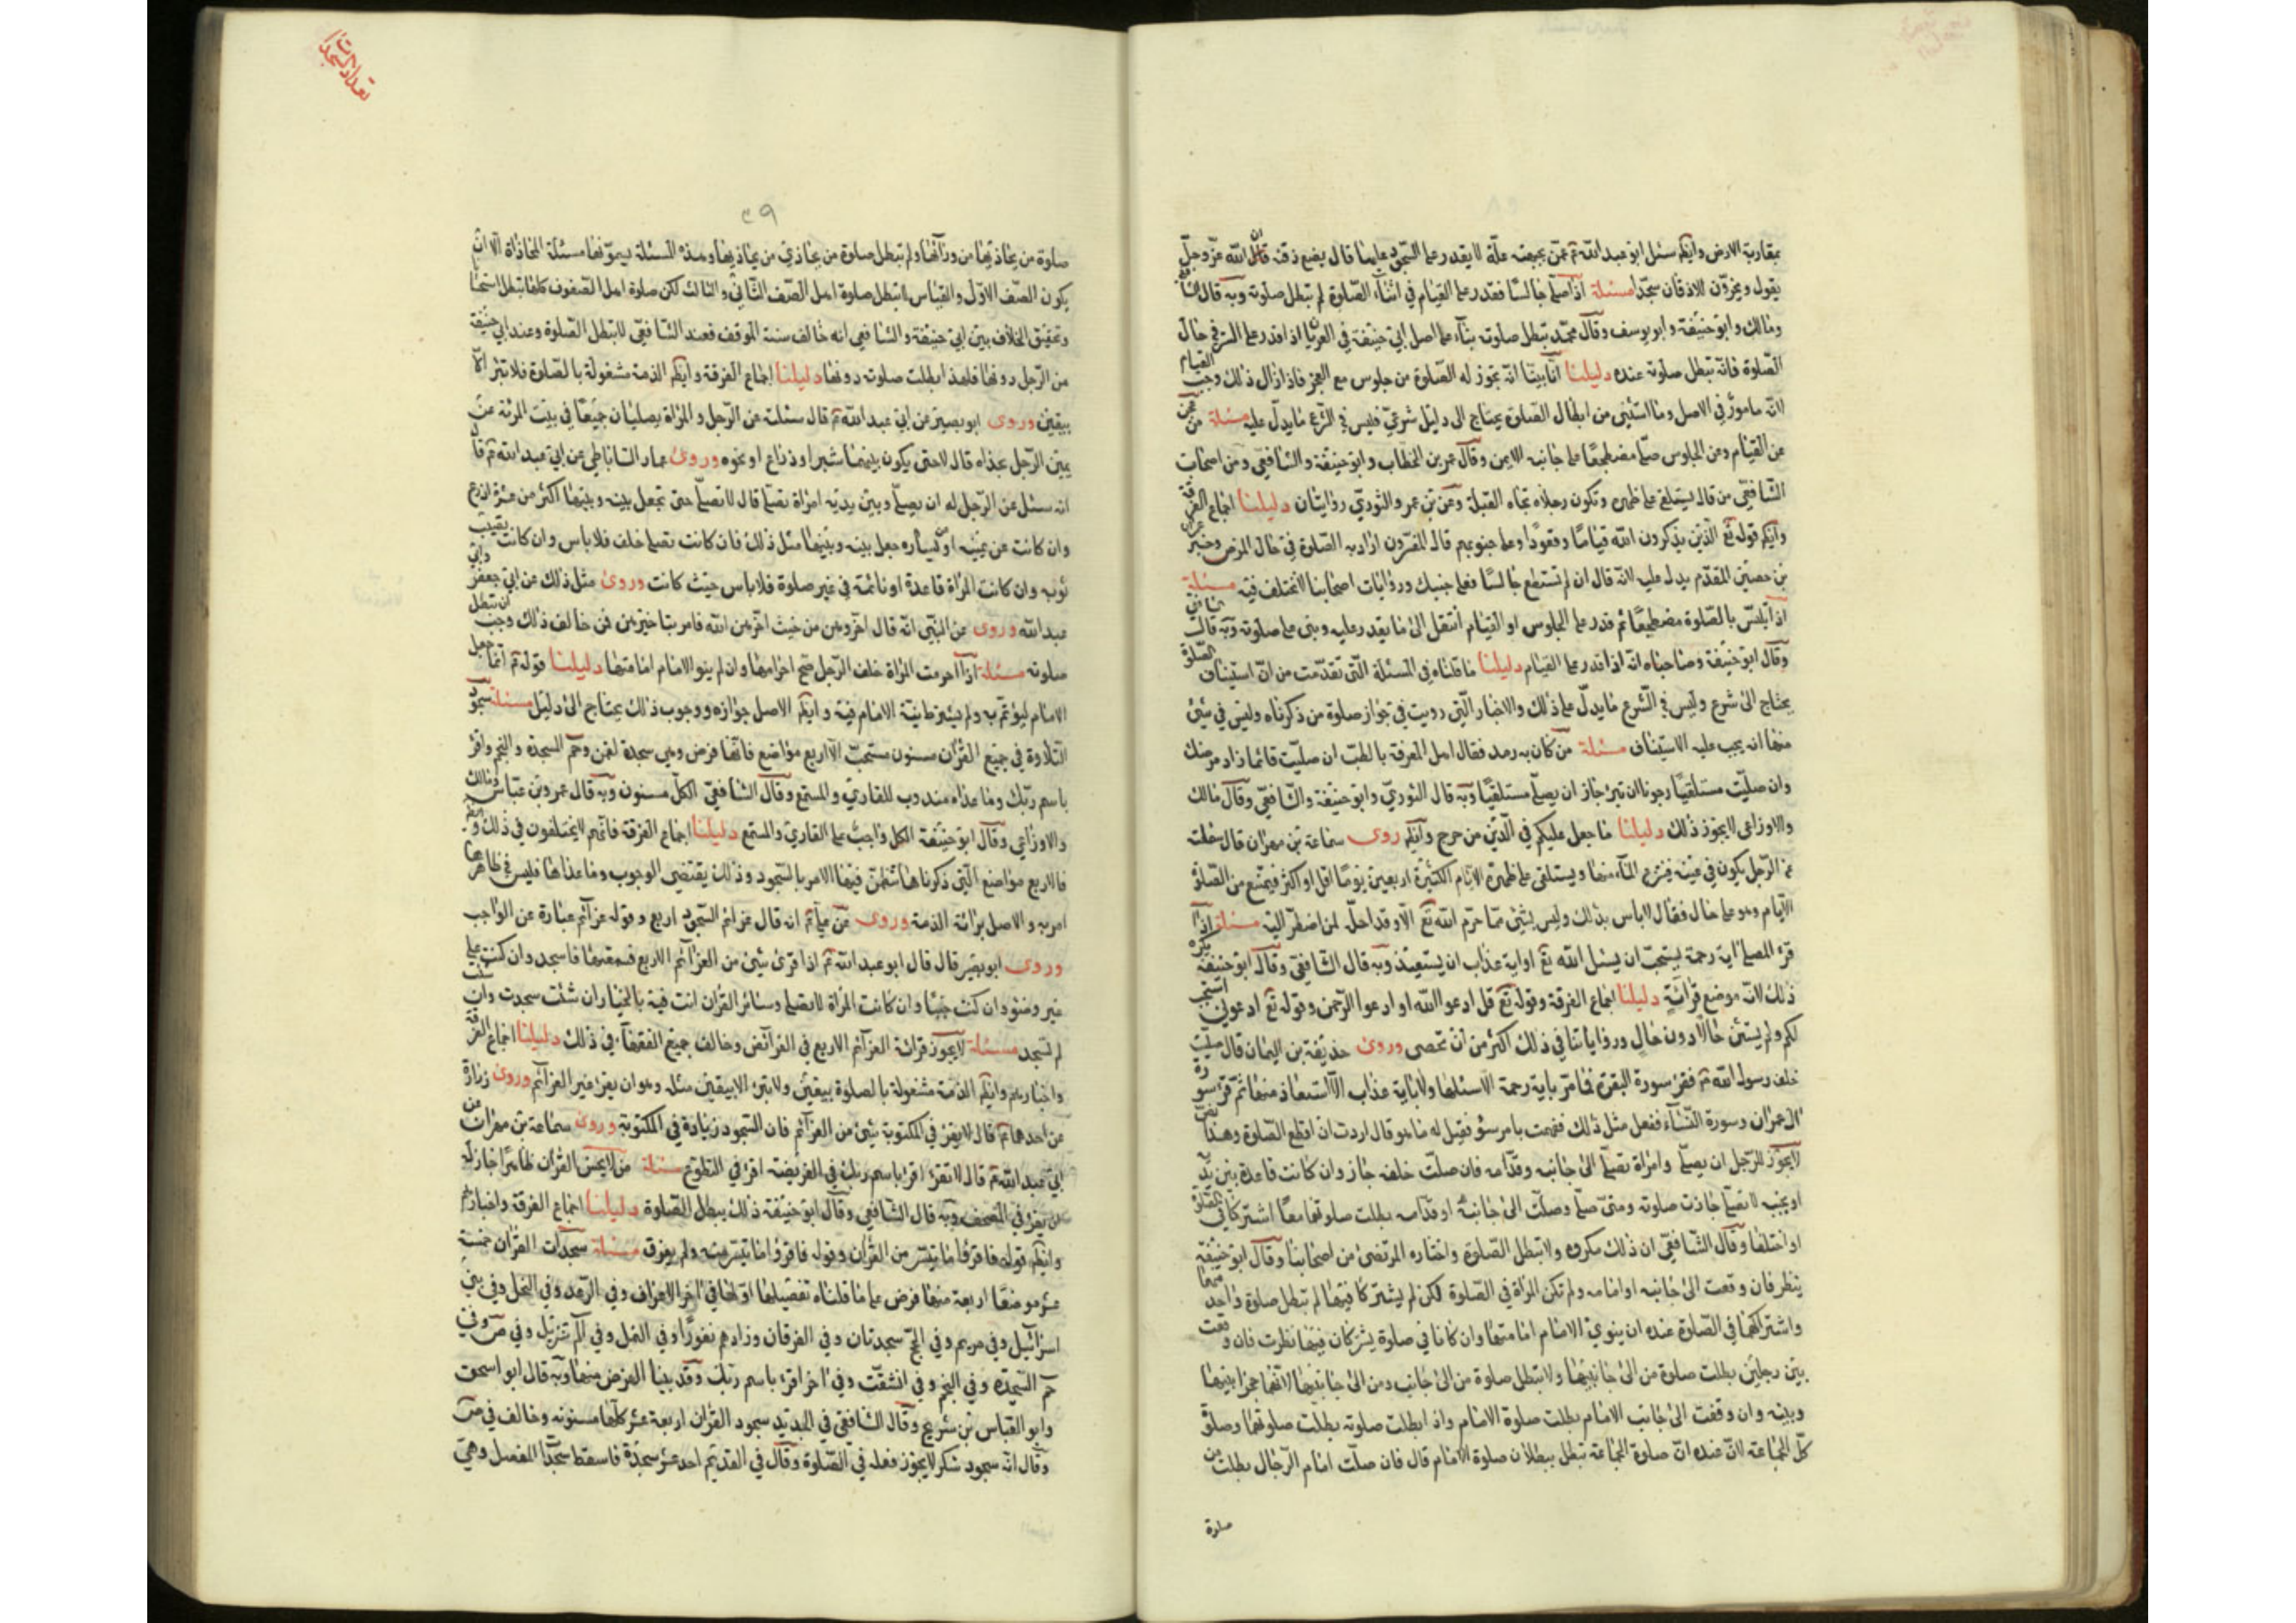 بمقاربة الارض وايكم سئل ابو عبد الله ع عمن بجبهته علة لا يقدر على السجود عليها قال يضع ذقنه قال الله عز وجل
يقول ويخرون للاذقان سجدا مسئلة اذا صلى جالسا فقدر على القيام في اثناء الصلوة لم تبطل صلوته وبه قال الشافعي
ومالك وابو حنيفة وابو يوسف وقال محمد تبطل صلوته بناء على اصل ابي حنيفة في العريان اذا قدر على السترة في حال
الصلوة فانه تبطل صلوته عنده دليلنا انا بينا انه تجوز له الصلوة من جلوس مع العجز فاذا زال ذلك وجب القيام
لانه مامور في الاصل وما استثنى من ابطال الصلوة يحتاج الى دليل شرعي فليس في الشرع ما يدل عليه مسئلة من عجز
عن القيام وعن الجلوس صلى مضطجعا على جانبه الايمن وقال عمر بن الخطاب وابو حنيفة والشافعي ومن اصحاب
الشافعي من قال يستلقي على ظهره وتكون رجلاه تجاه القبلة وعن بن عمر والثوري روايتان دليلنا اجماع الفرقة
وايكم قوله تع الذين يذكرون الله قياما وقعودا وعلى جنوبهم قال المفسرون اراد به الصلوة في حال المرض وخبر عمران
بن حصين المقدم يدل عليه لانه قال ان لم تستطع جالسا فعلى جنبك وروايات اصحابنا لا تختلف فيه مسئلة
اذا تلبس بالصلوة مضطجعا ثم قدر على الجلوس او القيام انتقل الى ما يقدر عليه وبنى على صلوته وبه قال الشافعي
وقال ابو حنيفة وصاحباه انه اذا قدر على القيام دليلنا ما قلناه في المسئلة التي تقدمت من ان استيناف الصلوة
يحتاج الى شرع وليس في الشرع ما يدل على ذلك والاخبار التي رويت في جواز صلوة من ذكرناه وليس في شئ
منها انه يجب عليه الاستيناف مسئلة من كان به رمد فقال اهل المعرفة بالطب ان صليت قائما زاد مرضك
وان صليت مستلقيا رجونا ان تبرئ جاز ان يصلي مستلقيا وبه قال الثوري وابو حنيفة والشافعي وقال مالك
والاوزاعي لا يجوز ذلك دليلنا ما جعل عليكم في الدين من حرج وايكم روى سماعة بن مهران قال سئلت
عن الرجل يكون في عينه فينزع الماء منها ويستلقي على ظهره الايام الكثيرة اربعين يوما اقل او اكثر فيمتنع من الصلوة
الايام وهو على حال فقال لا باس بذلك وليس بشئ مما حرم الله تع الا وقد احله لمن اضطر اليه مسئلة اذا
قرء المصلي اية رحمة يستحب ان يسئل الله تع او اية عذاب ان يستعيذ وبه قال الشافعي وقال ابو حنيفة يكره
ذلك لانه موضع قرائة دليلنا اجماع الفرقة وقوله تع قل ادعوا الله او ادعوا الرحمن وقوله تع ادعوني استجب
لكم ولم يستثن حالا دون حال ورواياتنا في ذلك اكثر من ان تحصى وروى حذيفة بن اليمان قال صليت
خلف رسول الله ع فقرء سورة البقرة فما مر باية رحمة الا سئلها ولا باية عذاب الا استعاذ منها ثم قرء سورة
ال عمران وسورة النساء ففعل مثل ذلك فهممت بامر سوء فقيل له ما هو قال اردت ان اقطع الصلوة وهذا نص
لا يجوز للرجل ان يصلي وامراة تصلي الى جانبه وقدامه فان صلت خلفه جاز وان كانت قاعدة بين يديه
او بجنبه لا تصلي جازت صلوته ومتى صلى وصلت الى جانبه او قدامه بطلت صلوتهما معا اشتركا في الصلوة
او اختلفا وقال الشافعي ان ذلك مكروه ولا تبطل الصلوة واختاره المرتضى من اصحابنا وقال ابو حنيفة
ينظر فان وقفت الى جانبه او امامه ولم تكن المراة في الصلوة لكن لم يشتركا فيها لم تبطل صلوة واحد منهما
واشتراكهما في الصلوة عنده ان ينوي الامام امامتها وان كانا في صلوة يشتركان فيها نظرت فان وقفت
بين رجلين بطلت صلوة من الى جانبيها ولا تبطل صلوة من الى جانب ومن الى جانبيها لانهما حجزا بينها
وبينه وان وقفت الى جانب الامام بطلت صلوة الامام واذا بطلت صلوته بطلت صلوتها وصلوة
كل الجماعة لان عنده ان صلوة الجماعة تبطل ببطلان صلوة الامام قال فان صلت امام الرجال بطلت من
صلوة
تعداد السجدات
٤٩
صلوة من يحاذيها من ورائها ولم تبطل صلوة من يحاذي من يحاذيها وهذه المسئلة يسمونها مسئلة المحاذاة الا ان
يكون الصف الاول والقياس لا تبطل صلوة اهل الصف الثاني والثالث لكن صلوة اهل الصفوف كلها تبطل استحسانا
وتحقيق الخلاف بين ابي حنيفة والشافعي انه خالف سنة الموقف فعند الشافعي لا تبطل الصلوة وعند ابي حنيفة
من الرجل دونها فلهذا بطلت صلوته دونها دليلنا اجماع الفرقة وايكم الذمة مشغولة بالصلوة فلا تبرء الا
بيقين وروى ابو بصير عن ابي عبد الله ع قال سئلته عن الرجل والمراة يصليان جميعا في بيت المرئة عن
يمين الرجل بحذاه قال لا حتى يكون بينهما شبرا وذراع او نحوه وروى عمار الساباطي عن ابي عبد الله ع قال
انه سئل عن الرجل له ان يصلي وبين يديه امراة تصلي قال لا تصلي حتى تجعل بينه وبينها اكثر من عشرة اذرع
وان كانت عن يمينه او يساره جعل بينه وبينها مثل ذلك فان كانت تصلي خلفه فلا باس وان كانت تصيب
ثوبه وان كانت المراة قاعدة او نائمة في غير صلوة فلا باس حيث كانت وروى مثل ذلك عن ابي جعفر وابي
عبد الله وروى عن النبي انه قال اخروهن من حيث اخرهن الله فامر بتاخيرهن فمن خالف ذلك وجب ان تبطل
صلوته مسئلة اذا احرمت المراة خلف الرجل صح احرامها وان لم ينو الامام امامتها دليلنا قوله ع انما جعل
الامام ليؤتم به ولم يشترط نية الامام فيه وايكم الاصل جوازه ووجوب ذلك يحتاج الى دليل مسئلة سجود
التلاوة في جميع القران مسنون مستحب الا اربع مواضع فانها فرض وهي سجدة لقمن وحم السجدة والنجم واقرء
باسم ربك وما عداه مندوب للقاري والمستمع وقال الشافعي الكل مسنون وبه قال عمر وبن عباس ومالك
والاوزاعي وقال ابو حنيفة الكل واجب على القاري والمستمع دليلنا اجماع الفرقة فانهم لا يختلفون في ذلك
فالاربع مواضع التي ذكرناها اشتملن فيها الامر بالسجود وذلك يقتضي الوجوب وما عداها فليس في ظاهرها
امر به والاصل برائة الذمة وروى عن علي ع انه قال عزائم السجود اربع وقوله عزائم عبارة عن الواجب
وروى ابو بصير قال قال ابو عبد الله ع اذا قرئ شئ من العزائم الاربع فسمعتها فاسجد وان كنت على
غير وضوء وان كنت جنبا وان كانت المراة لا تصلي وسائر القران انت فيه بالخيار ان شئت سجدت وان شئت
لم تسجد مسئلة لا يجوز قرائة العزائم الاربع في الفرائض وخالف جميع الفقهاء في ذلك دليلنا اجماع الفرقة
واخبارهم وايكم الذمة مشغولة بالصلوة بيقين ولا تبرئ الا بيقين مثله وهو ان يقرء غير العزائم وروى زرارة
عن احدهما ع قال لا يقرء في المكتوبة بشئ من العزائم فان السجود زيادة في المكتوبة وروى سماعة بن مهران عن
ابي عبد الله ع قال لا تقرء اقرء باسم ربك في الفريضة اقرء في التطوع مسئلة من لا يحسن القران ظاهرا جاز له
ان يقرء في المصحف وبه قال الشافعي وقال ابو حنيفة ذلك يبطل الصلوة دليلنا اجماع الفرقة واخبارهم
وايكم قوله فاقرؤا ما تيسر من القران وقوله فاقرؤا ما تيسر منه ولم يفرق مسئلة سجدات القران خمسة
عشر موضعا اربعة منها فرض على ما قلناه تفصيلها اولها في اخر الاعراف وفي الرعد وفي النحل وفي بني
اسرائيل وفي مريم وفي الحج سجدتان وفي الفرقان وزادهم نفورا وفي النمل وفي الم تنزيل وفي ص وفي
حم السجدة وفي النجم وفي انشقت وفي اخر اقرء باسم ربك وقد بينا الفرض منها وبه قال ابو اسحق
وابو العباس بن سريج وقال الشافعي في الجديد سجود القران اربعة عشر كلها مسنونه وخالف في ص
وقال انه سجود شكر لا يجوز فعله في الصلوة وقال في القديم احد عشر سجدة فاسقط سجدة المفصل وهي